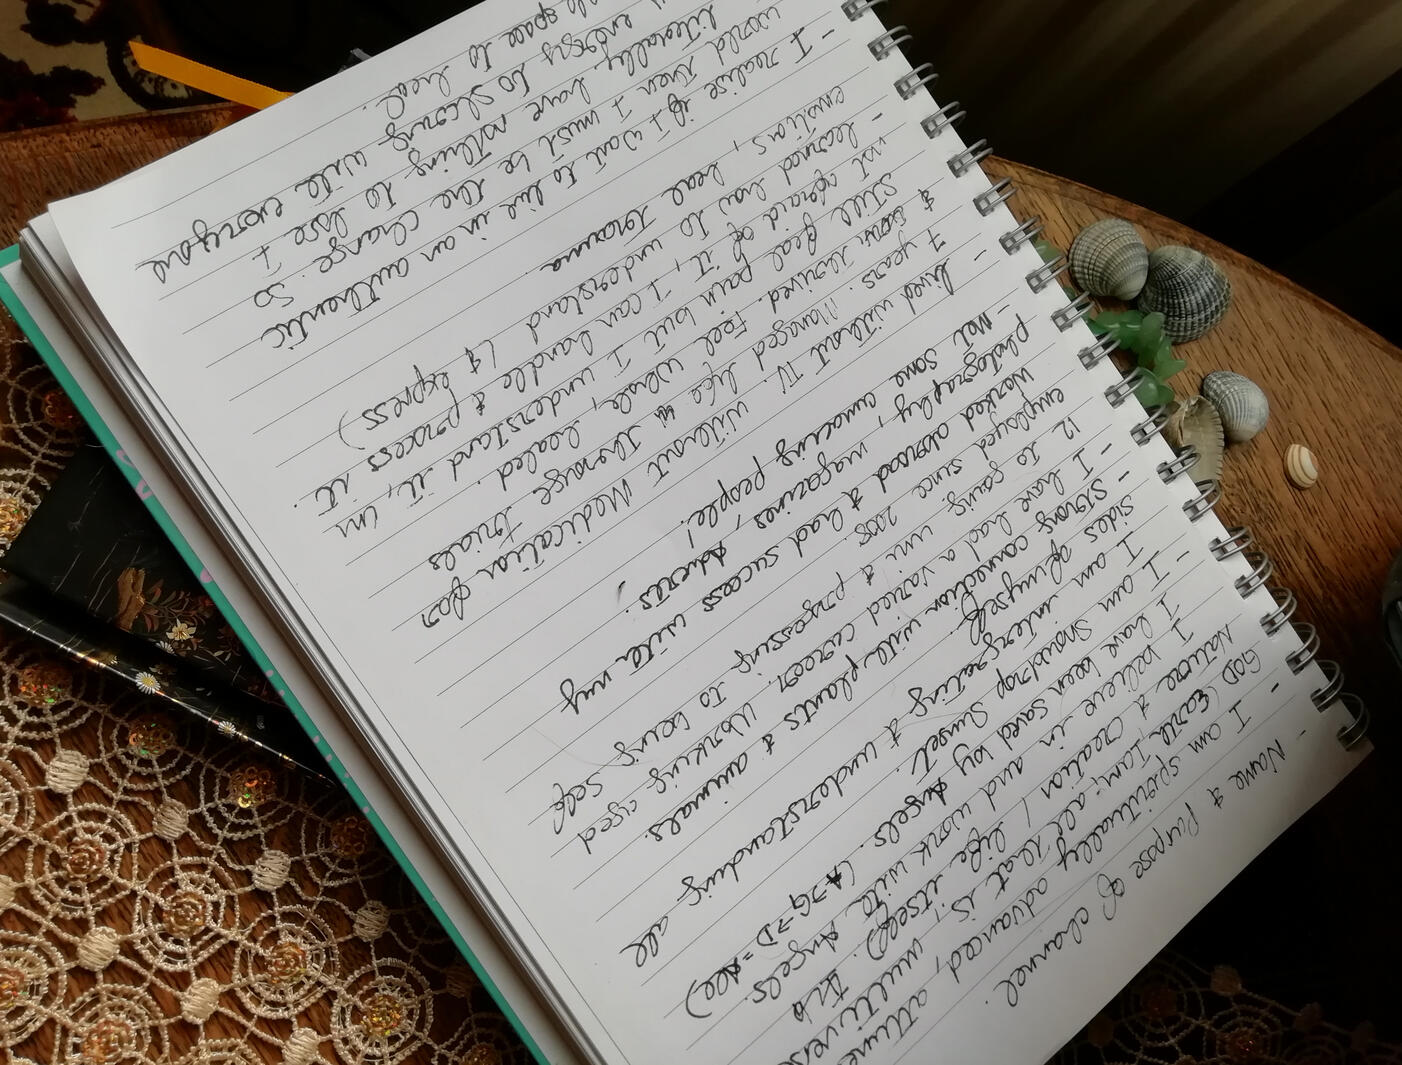 - Name & Purpose of channel.
- I am spiritually advanced, attune
GOD (Earth, I am, all that is, multiverse
Nature & creation / life itself). Into
I believe in and work with Angels.
I have been saved by Angels. (A→G→D =
I am Snowdrop Sunset.
- I am integrating & understanding all
sides of myself.
- Strong connection with plants & animals.
- I have had a varied career. Working aged
12 to going uni & progressing to being self
employed since 2005.
worked abroad & had success with my
photography, magazines, adverts.
- Met some amazing people!
- Lived without TV. without Medication for
7 years. Managed life through trials
& thrived. Feel whole, healed.
Still feel pain but I understand it, im
not afraid of it, I can handle & process it
- learned how to understand (& express)
emotions, heal trauma.
- I realise if I want to live in an authentic
world then I must be the change. So
literally have nothing to lose I
energy to sharing with everyone
space to heal.